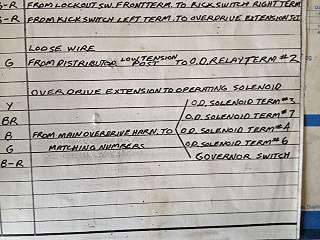 G-R FROM LOCKOUT SW. FRONT TERM. TO KICK SWITCH RIGHT TERM
G-R FROM KICK SWITCH LEFT TERM. TO OVERDRIVE EXTENSION
LOOSE WIRE
G FROM DISTRIBUTOR LOW TENSION POST TO O.D. RELAY TERM #2
OVERDRIVE EXTENSION TO OPERATING SOLENOID
Y O.D. SOLENOID TERM #3
BR O.D. SOLENOID TERM #7
B FROM MAIN OVERDRIVE HARN. TO O.D. SOLENOID TERM #4
G MATCHING NUMBERS O.D. SOLENOID TERM #6
B-R GOVERNOR SWITCH